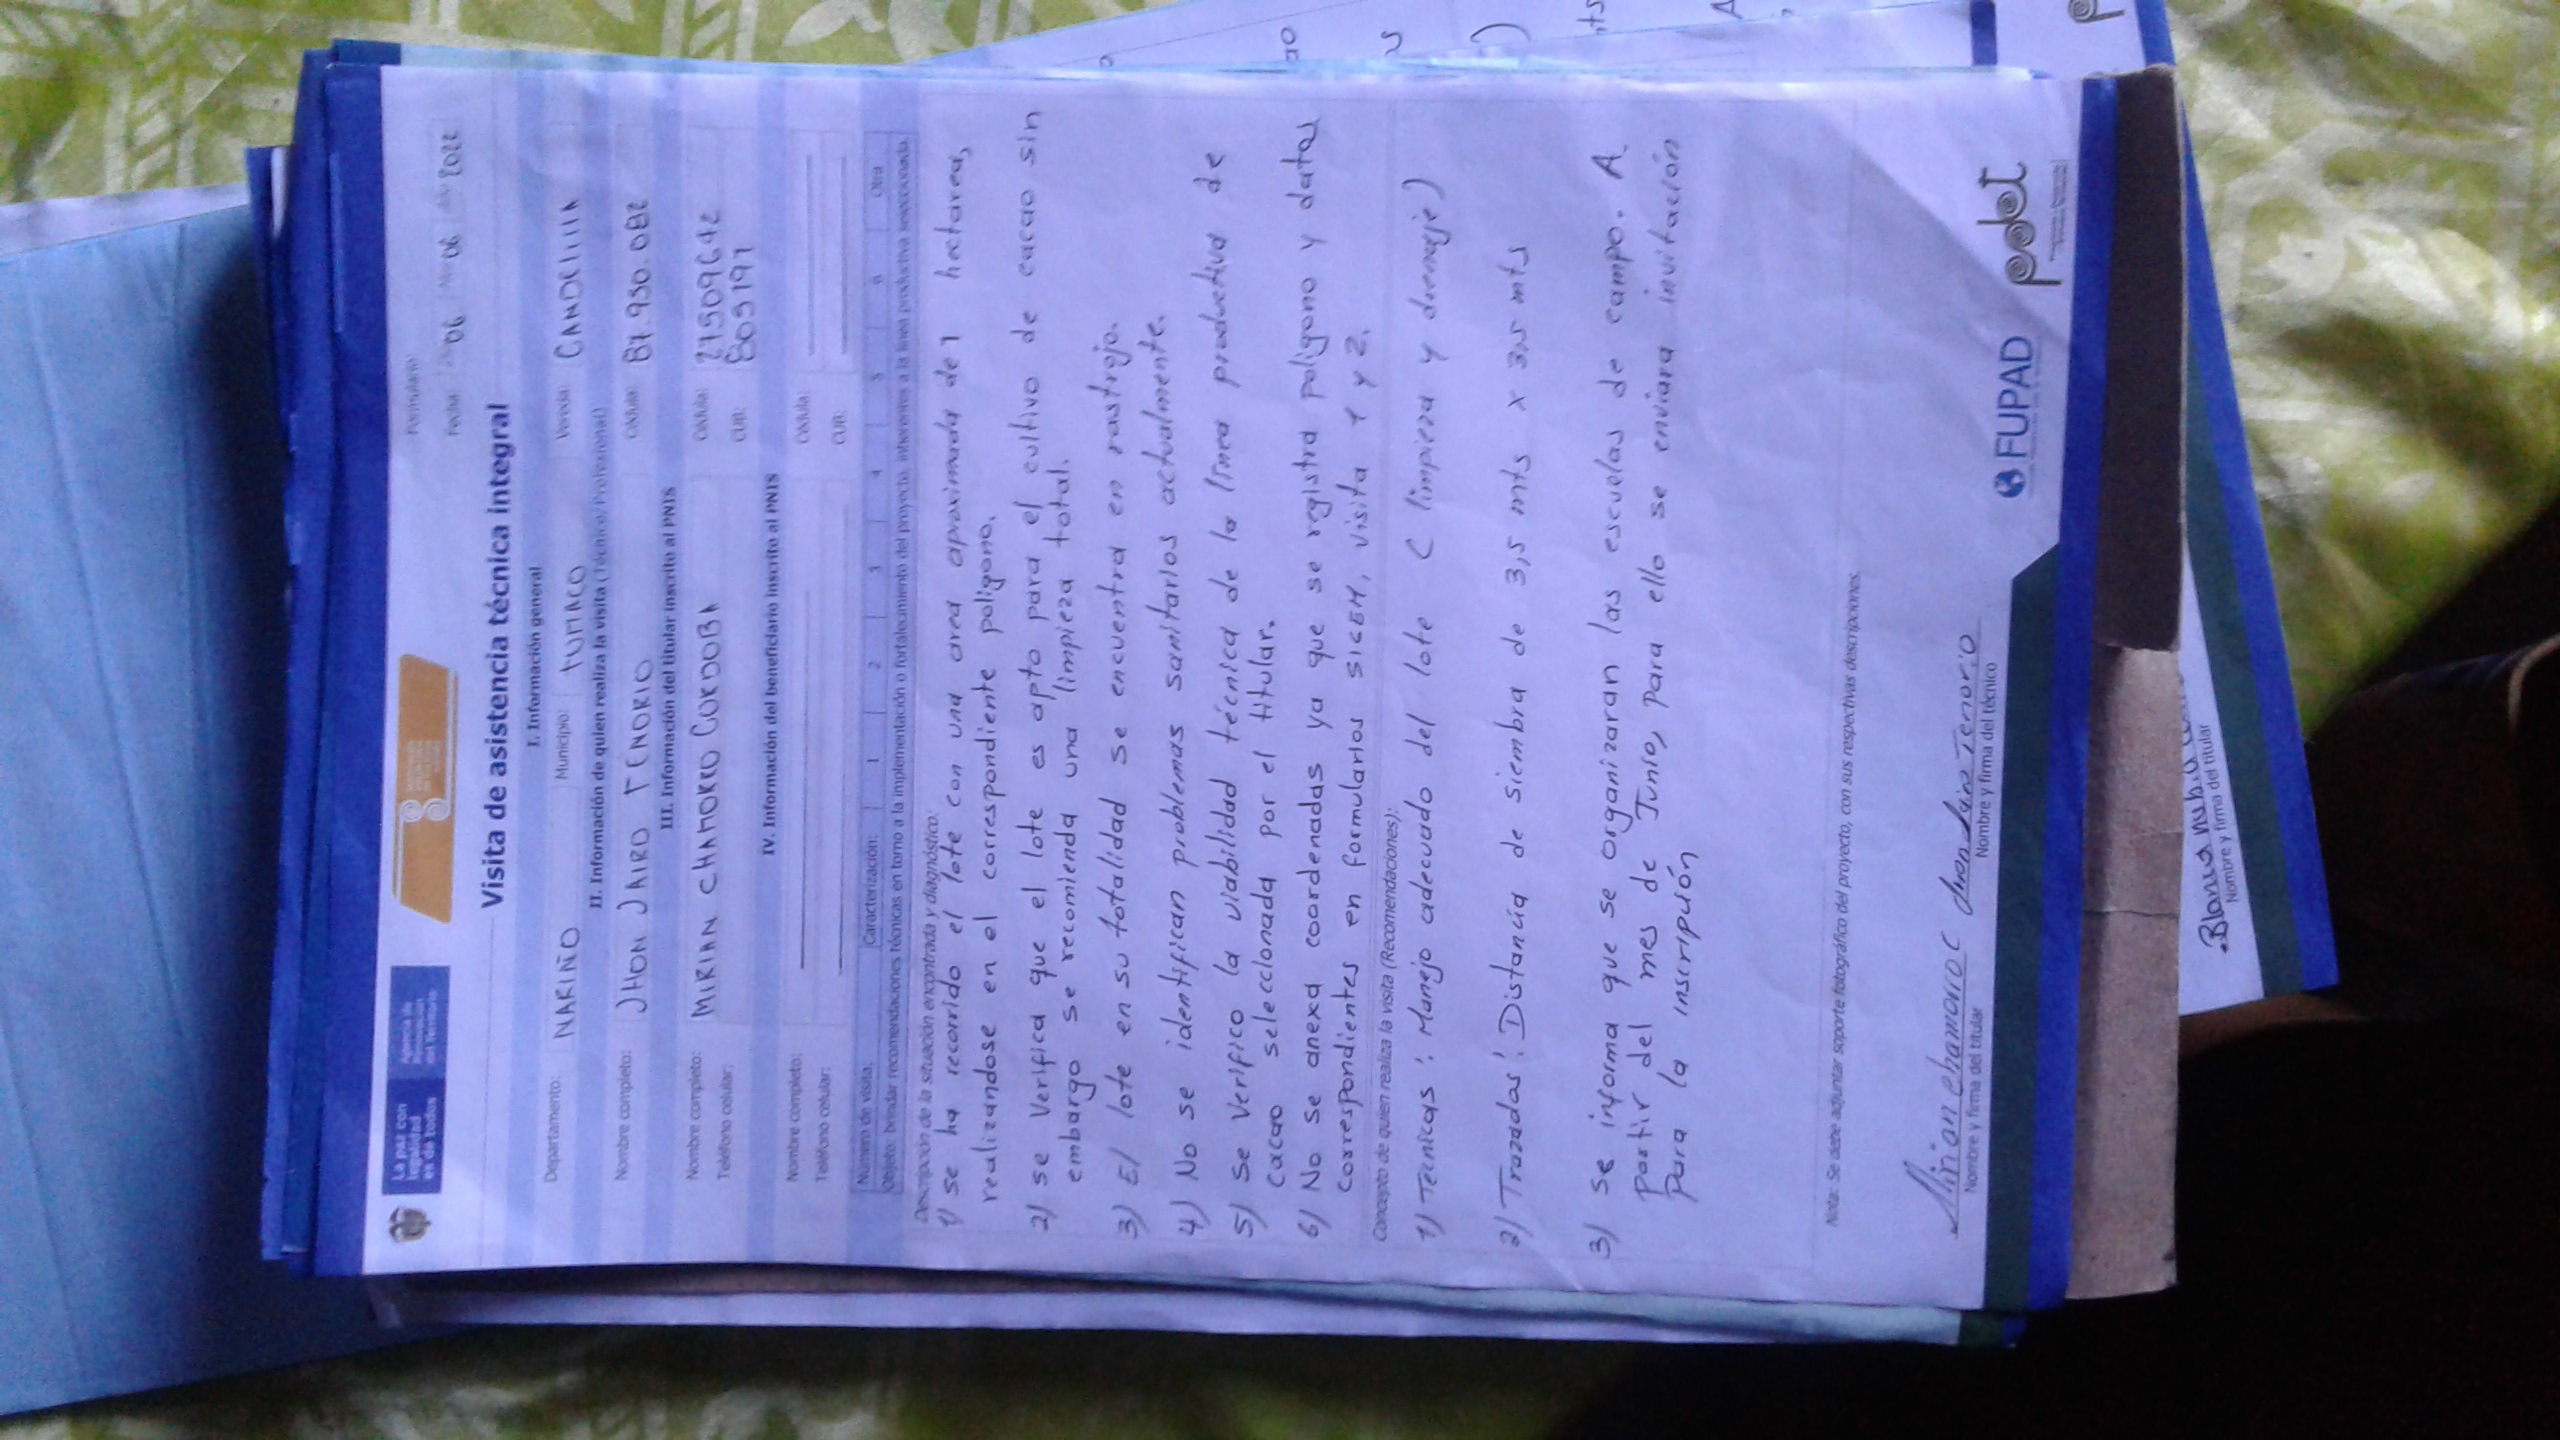 La paz con legalidad es de todos
Agencia de Renovación del Territorio
Formulario:
Fecha: 06 06 2022
Visita de asistencia técnica integral
I. Información general
Departamento: NARIÑO Municipio: TUMACO Vereda: CANDELILLA
II. Información de quien realiza la visita (Técnico/Profesional)
Nombre completo: JHON JAIRO TENORIO Cédula: 87.930.082
III. Información del titular inscrito al PNIS
Nombre completo: MIRIAN CHAMORRO CORDOBA Cédula: 27509642
Teléfono celular: CUB: 803191
IV. Información del beneficiario inscrito al PNIS
Nombre completo: Cédula:
Teléfono celular: CUB:
Número de visita: Caracterización: 1 2 3 4 5 6 Otra
Objeto: brindar recomendaciones técnicas en torno a la implementación o fortalecimiento del proyecto, inherentes a la línea productiva seleccionada.
Descripción de la situación encontrada y diagnóstico:
1) se ha recorrido el lote con una area aproximada de 1 hectarea,
realizandose en el correspondiente poligono.
2) se Verifica que el lote es apto para el cultivo de cacao sin
embargo se recomienda una limpieza total.
3) El lote en su totalidad se encuentra en rastrojo.
4) No se identifican problemas sanitarios actualmente.
5) Se Verifico la viabilidad técnica de la línea productiva de
cacao seleccionada por el titular.
6) No se anexa coordenadas ya que se registra poligono y datos
correspondientes en formularios SICEM, visita 1 y 2.
Concepto de quien realiza la visita (Recomendaciones):
1) Tecnicas: Manejo adecuado del lote ( limpieza y drenaje)
2) Trazados: Distancia de siembra de 3,5 mts x 3,5 mts
3) Se informa que se organizaran las escuelas de campo. A
partir del mes de Junio, para ello se enviara invitación
para la inscripción
Nota: Se debe adjuntar soporte fotográfico del proyecto, con sus respectivas descripciones.
Mirian chamorro C
Nombre y firma del titular
Jhon Jairo Tenorio
Nombre y firma del técnico
FUPAD
pdet
Blanca nubia
Nombre y firma del titular